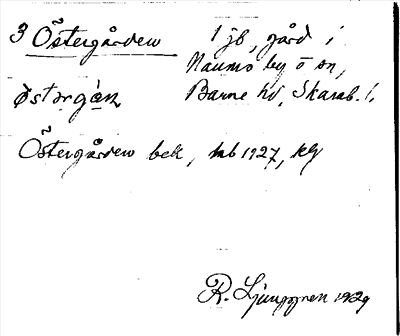 3 Östergården 1 jb, gård i
Naums by o sn,
östərgån Barne hd, Skarab. l.
Östergården bek, tab 1927, kg
R. Ljunggren 1929